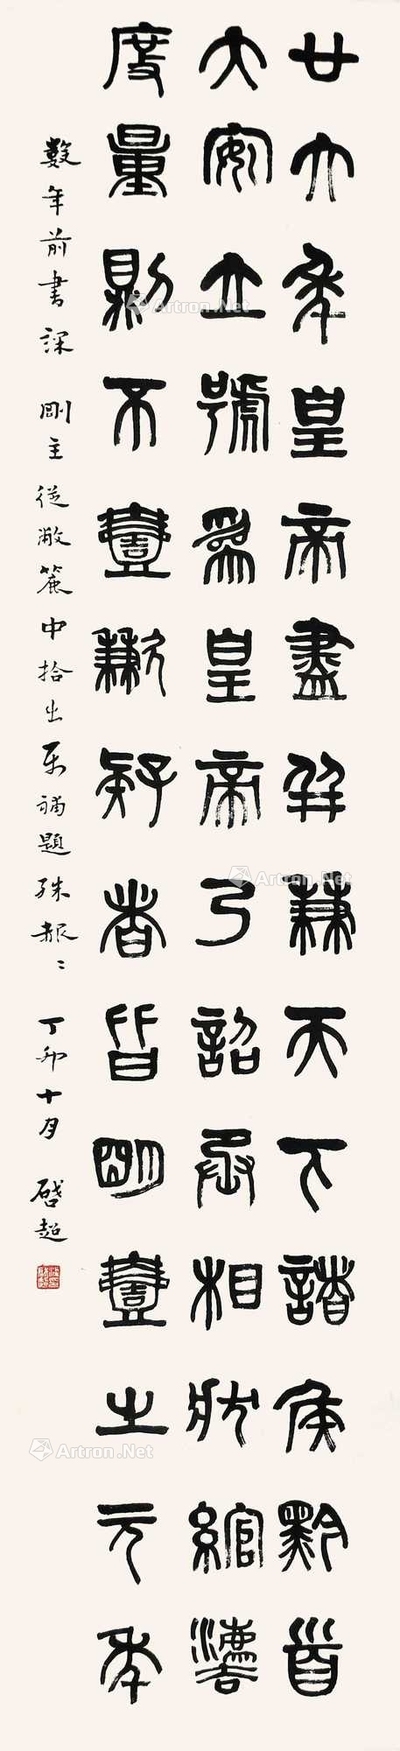 廿六年皇帝盡并兼天下諸侯黔首
大安立號為皇帝乃詔丞相狀綰灋
度量則不壹歉疑者皆明壹之元年
數年前書課 剛主從敝簏中拾出屬補題殊赧〻 丁卯十月 啓超
Artron.Net
Artron.Net
Artron.Net